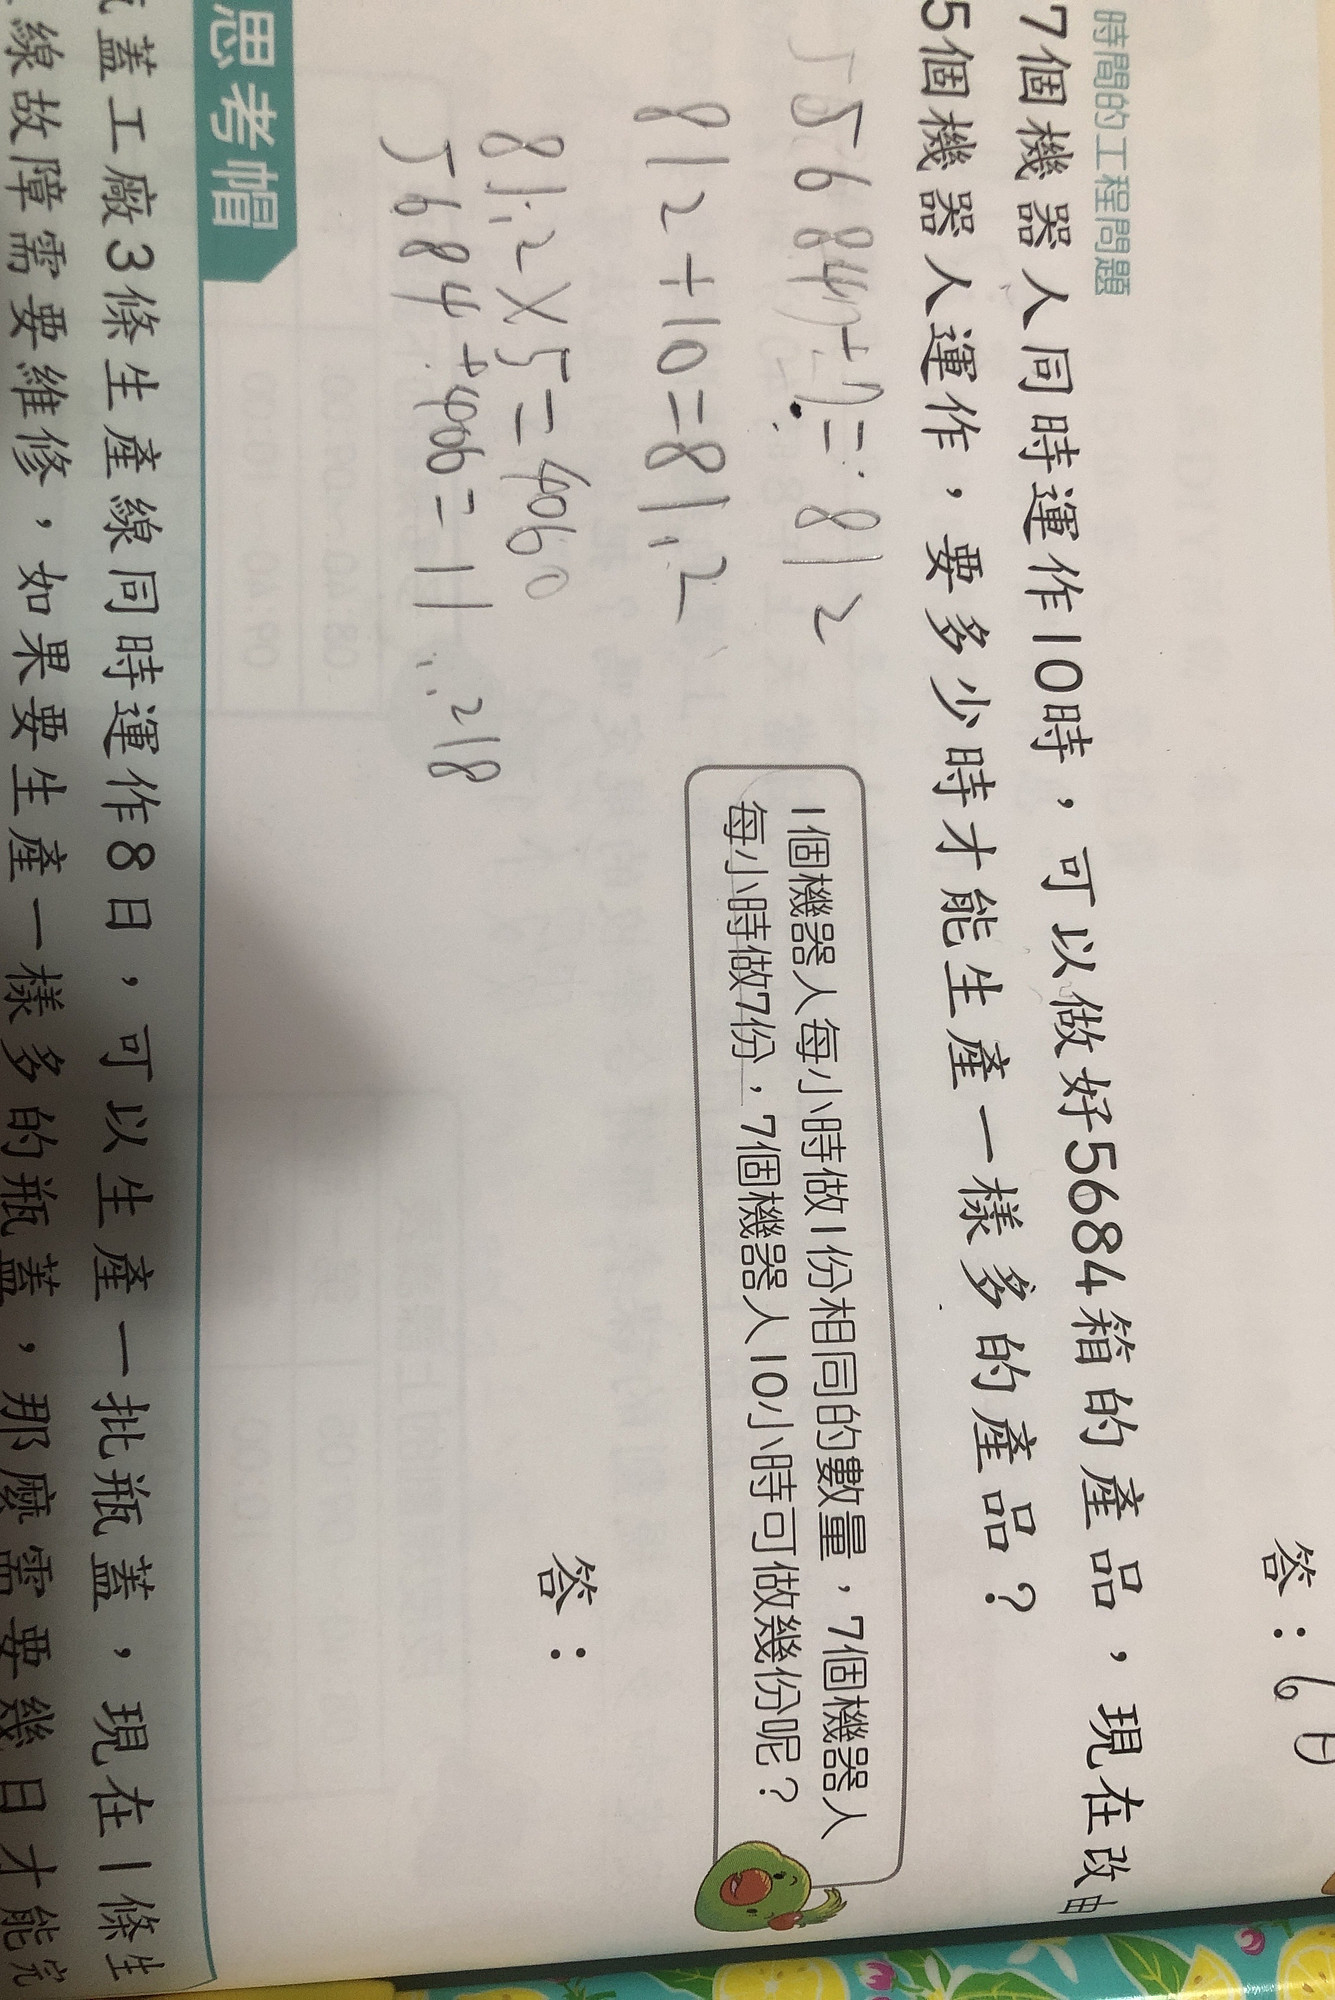 答：6日
時間的工程問題
7個機器人同時運作10時，可以做好5684箱的產品，現在改由
5個機器人運作，要多少時才能生產一樣多的產品？
1個機器人每小時做1份相同的數量，7個機器人
每小時做7份，7個機器人10小時可做幾份呢？
5684÷7=812
812÷10=81.2
81.2×5=4060
5684÷406=11.218
答：
思考帽
蓋工廠3條生產線同時運作8日，可以生產一批瓶蓋，現在1條生
線故障需要維修，如果要生產一樣多的瓶蓋，那麼需要幾日才能完